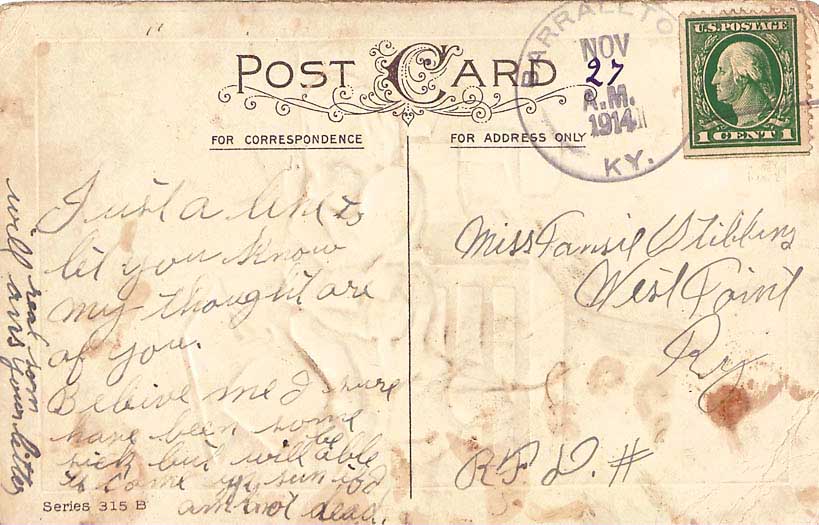 POST CARD
FOR CORRESPONDENCE
FOR ADDRESS ONLY
NOV
27
A.M.
1914
KY.
U.S. POSTAGE
1 CENT 1
Just a line to
let you know
my thought are
of you.
Belive me I sure
have been some
sick but will be able
to come up sun if I
am not dead.
will ans your letter
real soon
Miss Fansie Stibbins
West Point
Ky
R F D. #
Series 315 B